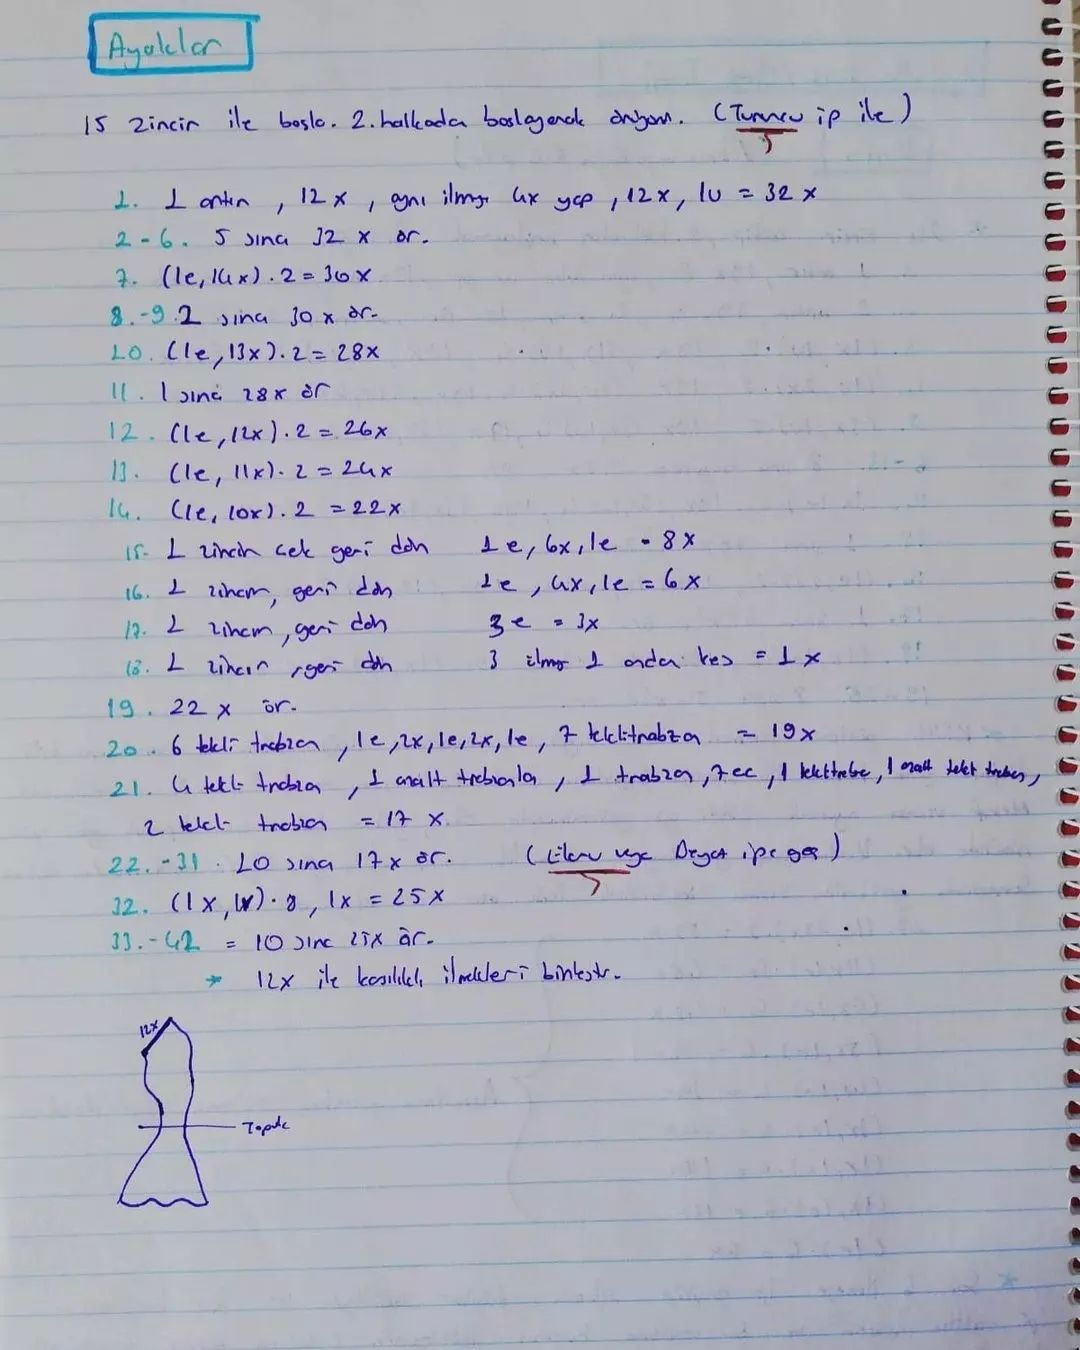 Ayaklar
15 zincir ile başla. 2. halkada başlayarak örüyoruz. (Turuncu ip ile)
1. 1 artır, 12x, aynı ilmeğe 4x yap, 12x, 1v = 32x
2-6. 5 sıra 32x ör.
7. (1e, 14x).2 = 30x
8.-9. 2 sıra 30x ör.
10. (1e, 13x).2 = 28x
11. 1 sıra 28x ör
12. (1e, 12x).2 = 26x
13. (1e, 11x).2 = 24x
14. (1e, 10x).2 = 22x
15. 1 zincir çek geri dön 1e, 6x, 1e = 8x
16. 1 zincir, geri dön 1e, 4x, 1e = 6x
17. 1 zincir, geri dön 3e = 3x
18. 1 zincir, geri dön 3 ilmeği 1 kes = 1x
19. 22x ör.
20. 6 tekli trabzan, 1e, 2x, 1e, 2x, 1e, 7 tekli trabzan = 19x
21. 4 tekli trabzan, 1 azalt trabzanla, 1 trabzan, 7 1 tekli 1 azalt tekli trabzan,
2 tekli trabzan = 17x.
22.-31. 10 sıra 17x ör. (veya Beyaz ipe geç)
32. (1x, 1v).8, 1x = 25x
33.-42 = 10 sıra 25x ör.
* 12x ile karşılıklı ilmekleri birleştir.
12x
Topuk